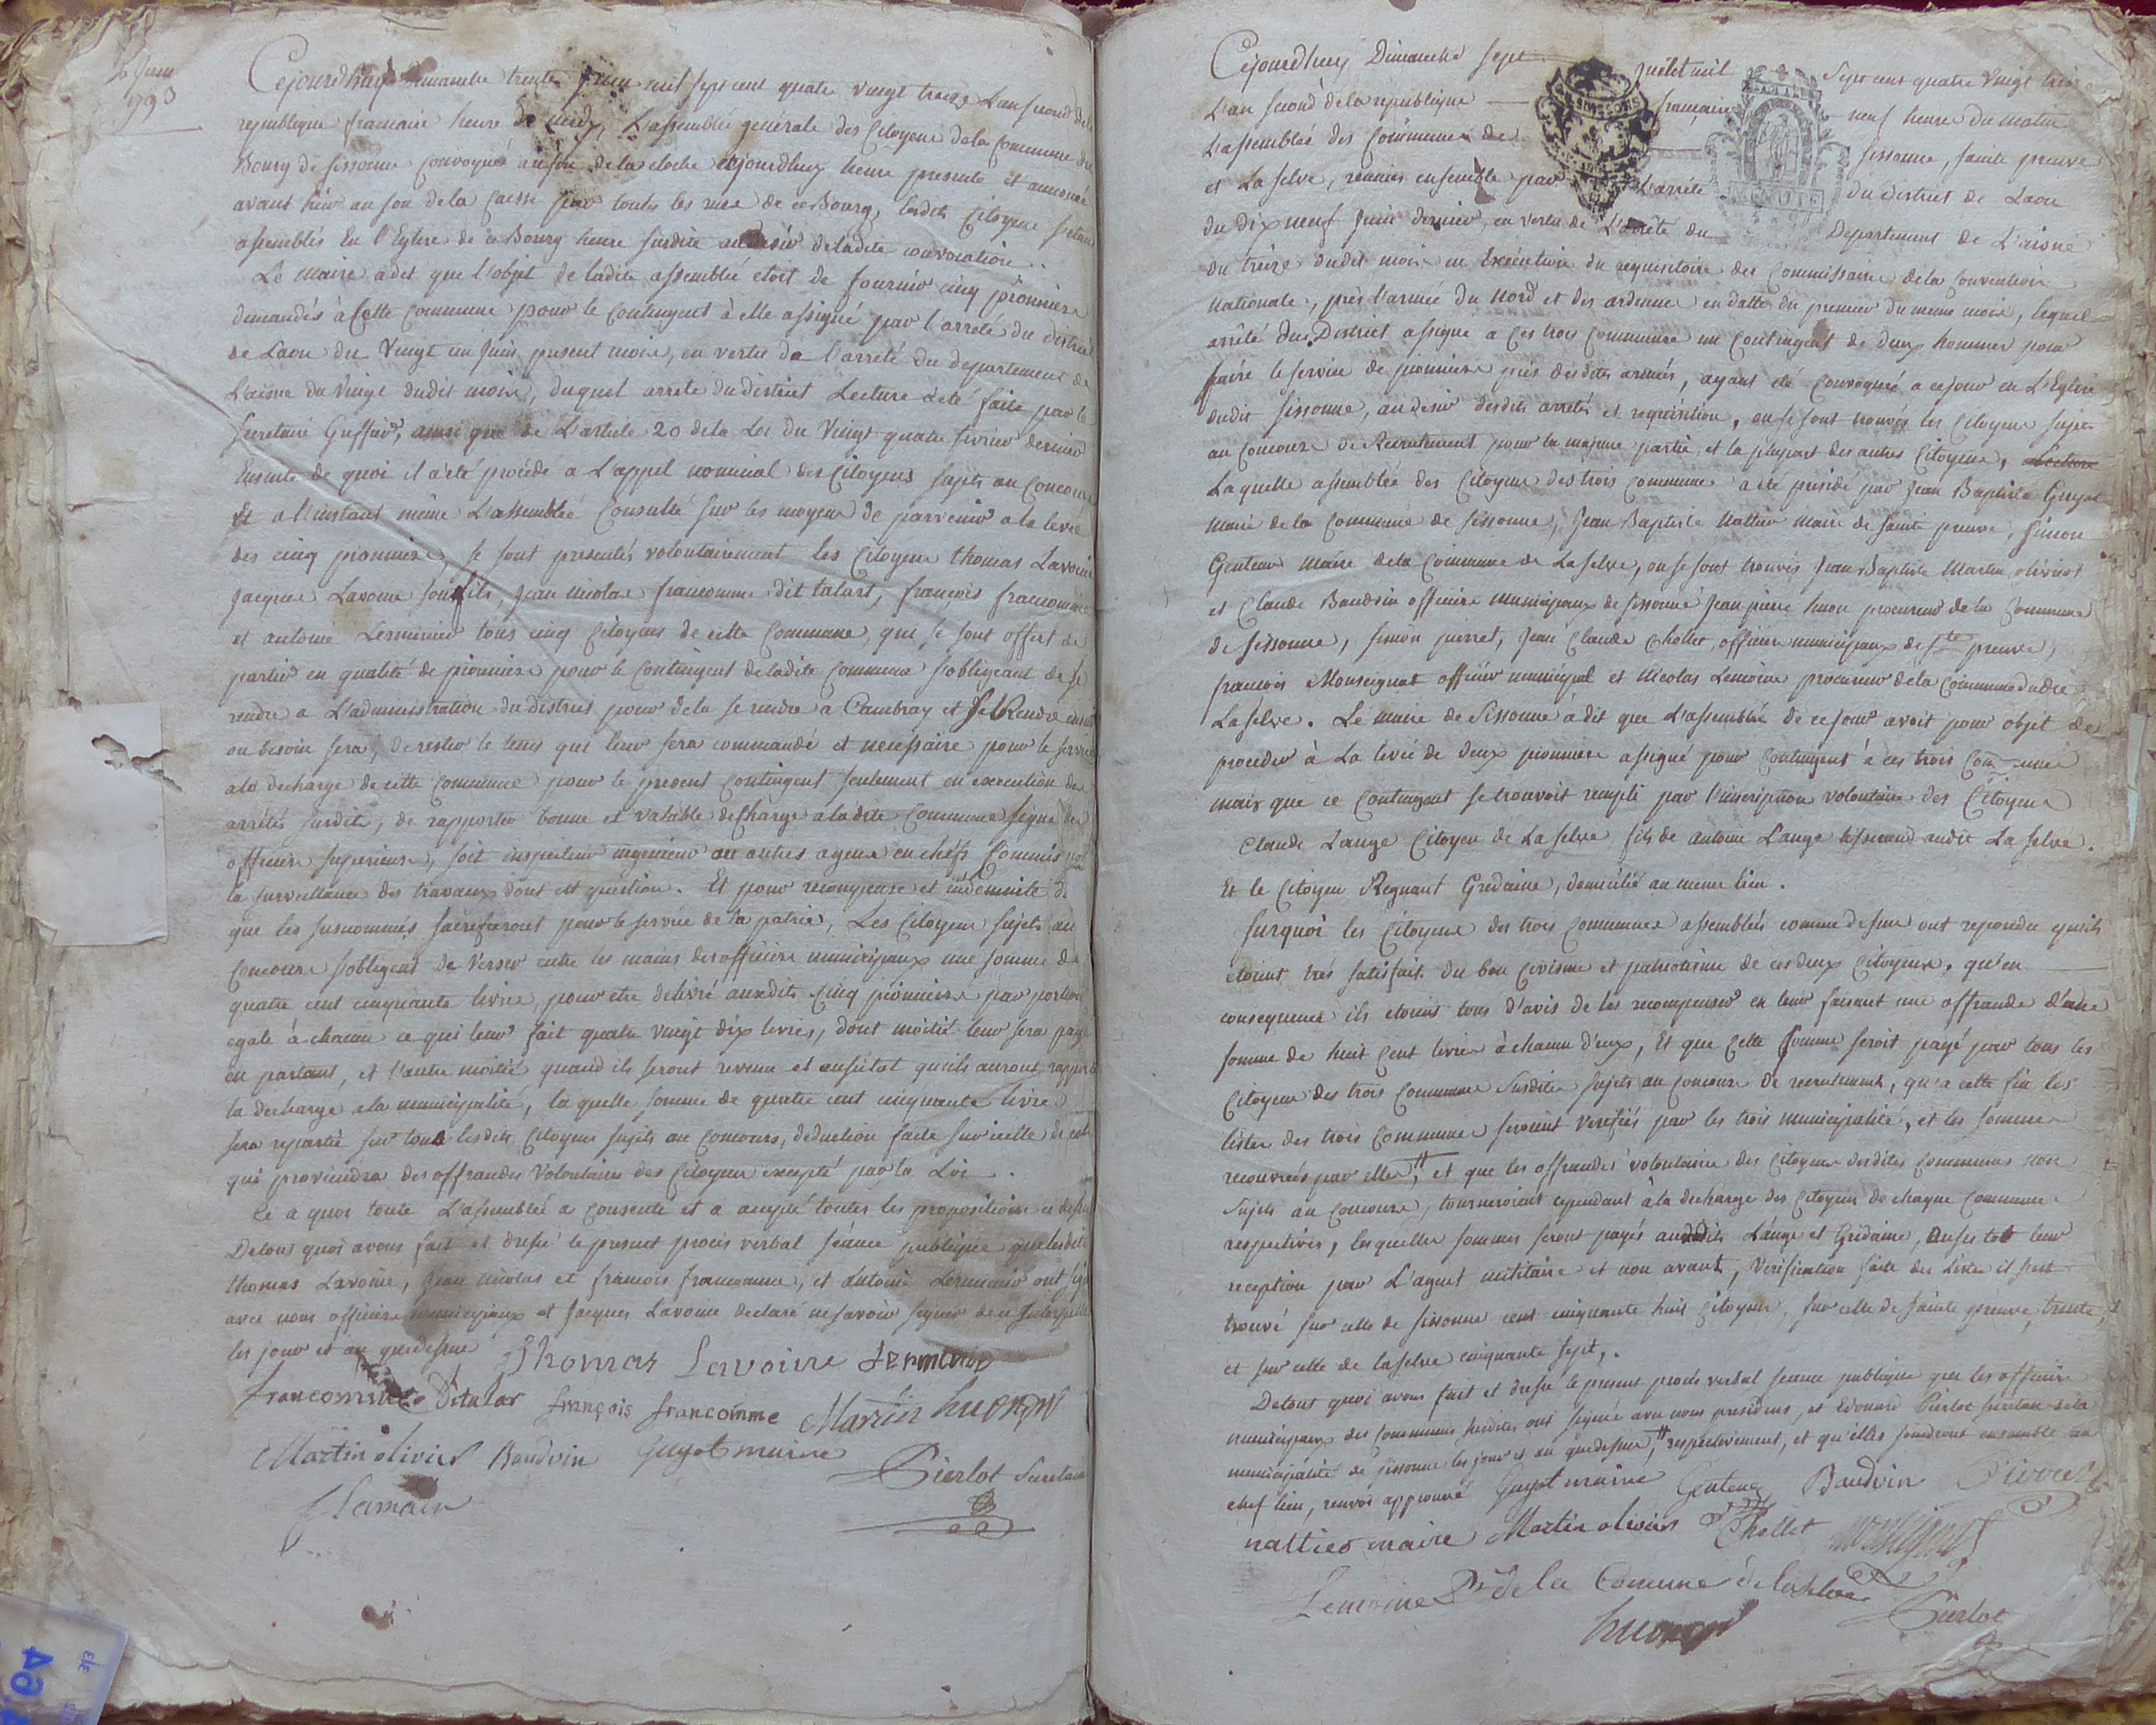 Juin
1793
Cejourdhuy Dimanche trente Juin mil sept cent quatre vingt treize L'an second de la
republique francaise heure de midy L'assemblée generale des Citoyens dela Commune du
Bourg de sissonne convoqués au son dela cloche cejourdhuy heure presente et annoncée
avant hier au son dela Caisse par toutes les rues de ce Bourg, lesdits Citoyens
assemblés En l'Eglise de ce Bourg heure susdite au desir deladite convocation.
Le Maire a dit que l'objet de ladite assemblée etoit de fournir cinq pionniers
demandés à Cette Commune pour le Contingent à elle assigné par l'arreté du district
de Laon du Vingt un Juin present mois, en vertu de l'arreté du departement de
L'aisne du Vingt dudit mois, duquel arreté du district Lecture a été faite par le
Secretaire Greffier, ainsi que de L'article 20 dela Loi du Vingt quatre fevrier dernier
Ensuite de quoi il a été procédé a L'appel nominal des Citoyens sujets au Concours
Et a l'instant même L'assemblée Consulté sur les moyens de parvenir a la levée
des cinq pionniers, se sont presentés volontairement les Citoyens thomas Lavoine
Jacques Lavoine son fils, Jean Nicolas francomme dit talart, françois francomme
et antoine Lerminier tous cinq Citoyens de cette Commune, qui se sont offert de
partir en qualité de pionniers pour le Contingent deladite Commune s'obligeant de se
rendre a L'administration du district pour dela se rendre à Cambray et se Rendre
ou besoin sera, de rester le tems qui leur sera commandé et necessaire pour le service
ala decharge de cette Commune pour le present Contingent seulement en execution des
arretés susdits, de rapporter bonne et valable decharge a ladite Commune signé des
officiers superieurs, soit inspecteur ingenieur ou autres agens en chefs Commis pour
la surveillance des travaux dont est question. Et pour recompense et indemnité de
que les susnommés sacrifieront pour le service de la patrie, Les Citoyens sujets au
Concours s'obligent de verser entre les mains des officiers municipaux une somme de
quatre cent cinquante livres, pour etre delivré auxdits Cinq pionniers par portion
egale à chacun ce qui leur fait quatre vingt dix livres, dont moitié leur sera payé
en partant, et l'autre moitié quand ils seront revenu et aussitot qu'ils auront rapporté
la decharge ala municipalité, la quelle somme de quatre cent cinquante livres
sera repartie sur tous lesdits Citoyens sujets au Concours, deduction faite sur icelle de celle
qui proviendra des offrandes volontaires des Citoyens excepté par la Loi.
Ce a quoi toute L'assemblée a consenti et a accepté toutes les propositions ci dessus
Detous quoi avons fait et dressé le present procès verbal séance publique que lesdits
thomas Lavoine, Jean Nicolas et francois francomme, et Antoine Lerminier ont signé
avec nous officiers municipaux et Jacques Lavoine declaré ne savoir signer de ce interpellé
les jour et an quedessus
Thomas Lavoinne Lerminier
francomme Ditalar françois francomme Martin huon
Martin olivier Baudvin Guyot maire
Pierlot Secretaire
Lamain
Cejourdhuy Dimanche sept Juillet mil Sept cent quatre vingt treize
L'an second de la republique française neuf heure du matin
L'assemblée des Communes de sissonne, sainte preuve
et La selve, reunies ensemble par L'arrété du district de Laon
du dix neuf Juin dernier, en vertu de L'arrêté du Departement de L'aisne
du treize dudit mois en Exécution du requisitoire des Commissaires dela Convention
Nationale, près l'armée du Nord et des ardennes en datte du premier du meme mois, lequel
arrêté du District assigne a ces trois Communes un Contingent de deux hommes pour
faire le service de pionniers près desdites armées, ayant été Convoquée a ce jour en L'Eglise
dudit sissonne, au desir desdits arretés et requisition, ou se sont trouvés les Citoyens sujets
au Concours de Recrutement pour la majeure partie, et la plupart des autres Citoyens, Lecture
Laquelle assemblée des Citoyens des trois Communes a été présidé par Jean Baptiste Guyot
Maire de la Commune de sissonne, Jean Baptiste Nattier Maire de sainte preuve, Simon
Genteur Maire dela Commune de Laselve, ou se sont trouvés Jean Baptiste Martin olivier
et Claude Baudvin officiers municipaux de sissonne Jean pierre huon procureur de la Commune
de Sissonne, simon pierret, Jean Claude Chollet, officiers municipaux de Ste preuve,
francois Monseignat officier municipal et Nicolas Lemoine procureur dela Commune dudit
Laselve. Le maire de Sissonne à dit que L'assemblée de ce jour avoit pour objet de
proceder à La levée de deux pionniers assigné pour Contingent à ces trois Communes
mais que ce Contingent se trouvoit rempli par l'inscription volontaire des Citoyens
Claude Lange Citoyen de La selve fils de antoine Lange tisserand audit La selve.
Et le Citoyen Regnaut Gredaine, domicilié au meme lieu.
Surquoi les Citoyens des trois Communes assemblés comme dessus ont repondu qu'ils
etoient très satisfait du bon Civisme et patriotisme de ces deux Citoyens, qu'en
consequence ils etoient tous d'avis de les recompenser en leur faisant une offrande d'une
somme de huit Cent livres à chacun d'eux, Et que cette somme seroit payé par tous les
Citoyens des trois Communes Susdites sujets au concours de recrutement, qu'a cette fin les
listes des trois Communes seroient verifiés par les trois municipalité, et les sommes
recouvrées par elles, et que les offrandes volontaires des Citoyens desdites Communes non
sujets au concours, tourneroient cependant à la decharge des Citoyens de chaque Commune
respectives, lesquelles sommes seront payés auxdits Lange et Gredaine, Aussi tot leur
reception par L'agent militaire et non avant, Verification faite des Listes il s'est
trouvé sur celle de sissonne cent cinquante huit Citoyens, sur celle de sainte preuve, trente,
et sur celle de laselve cinquante sept,.
Detous quoi avons fait et dressé le present procès verbal seance publique que les officiers
municipaux des Communes susdites ont signé avec nous presidens, et Edouard Pierlot secretaire dela
municipalité de sissonne les jour et an quedessus, respectivement, et qu'elles joindront ensemble au
chef lieu, renvoi approuvé Guyot maire Genteur Baudvin Pierret
nattier maire Martin olivier Chollet Monseignat
Lemoine Pr de la Comune de laselve
Pierlot
huon